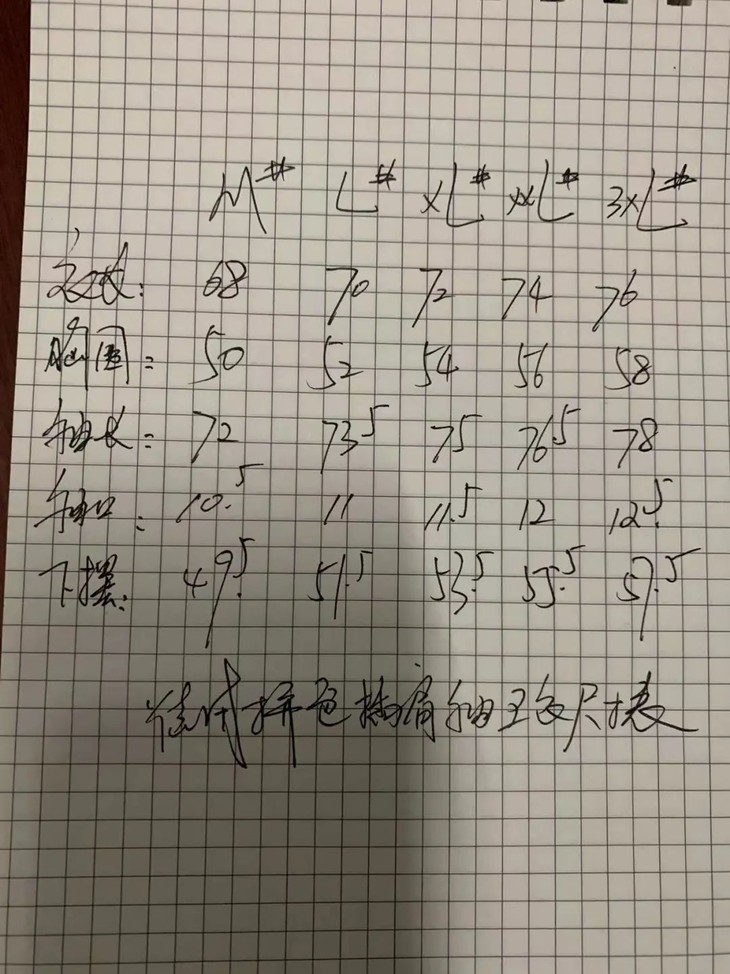 M# L# XL# XXL# 3XL#
衣长: 68 70 72 74 76
胸围: 50 52 54 56 58
袖长: 72 73.5 75 76.5 78
袖口: 10.5 11 11.5 12 12.5
下摆: 49.5 51.5 53.5 55.5 57.5
拼色插肩袖 尺寸表